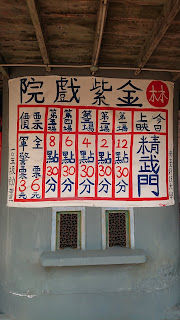 林
金紫戲院
今日上映
精武門
第一場
12點30分
第二場
2點30分
第三場
4點30分
第四場
6點30分
第五場
8點30分
票價
全票6元
軍警票3元